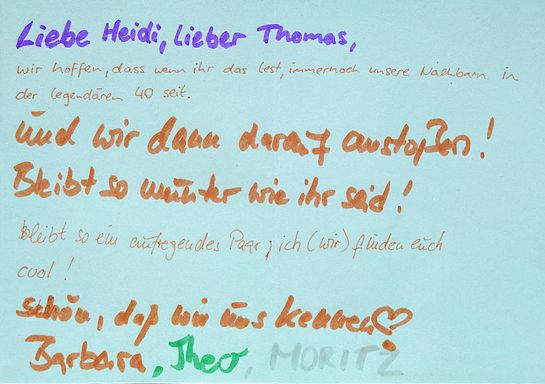 Liebe Heidi, lieber Thomas,
wir hoffen, dass wenn ihr das lest, immernoch unsere Nachbarn in
der legendären 40 seit.
und wir dann darauf anstoßen!
Bleibt so munter wie ihr seid!
bleibt so ein aufregendes Paar, ich (wir) finden euch
cool!
schön, daß wir uns kennen♡
Barbara, Theo, MORITZ